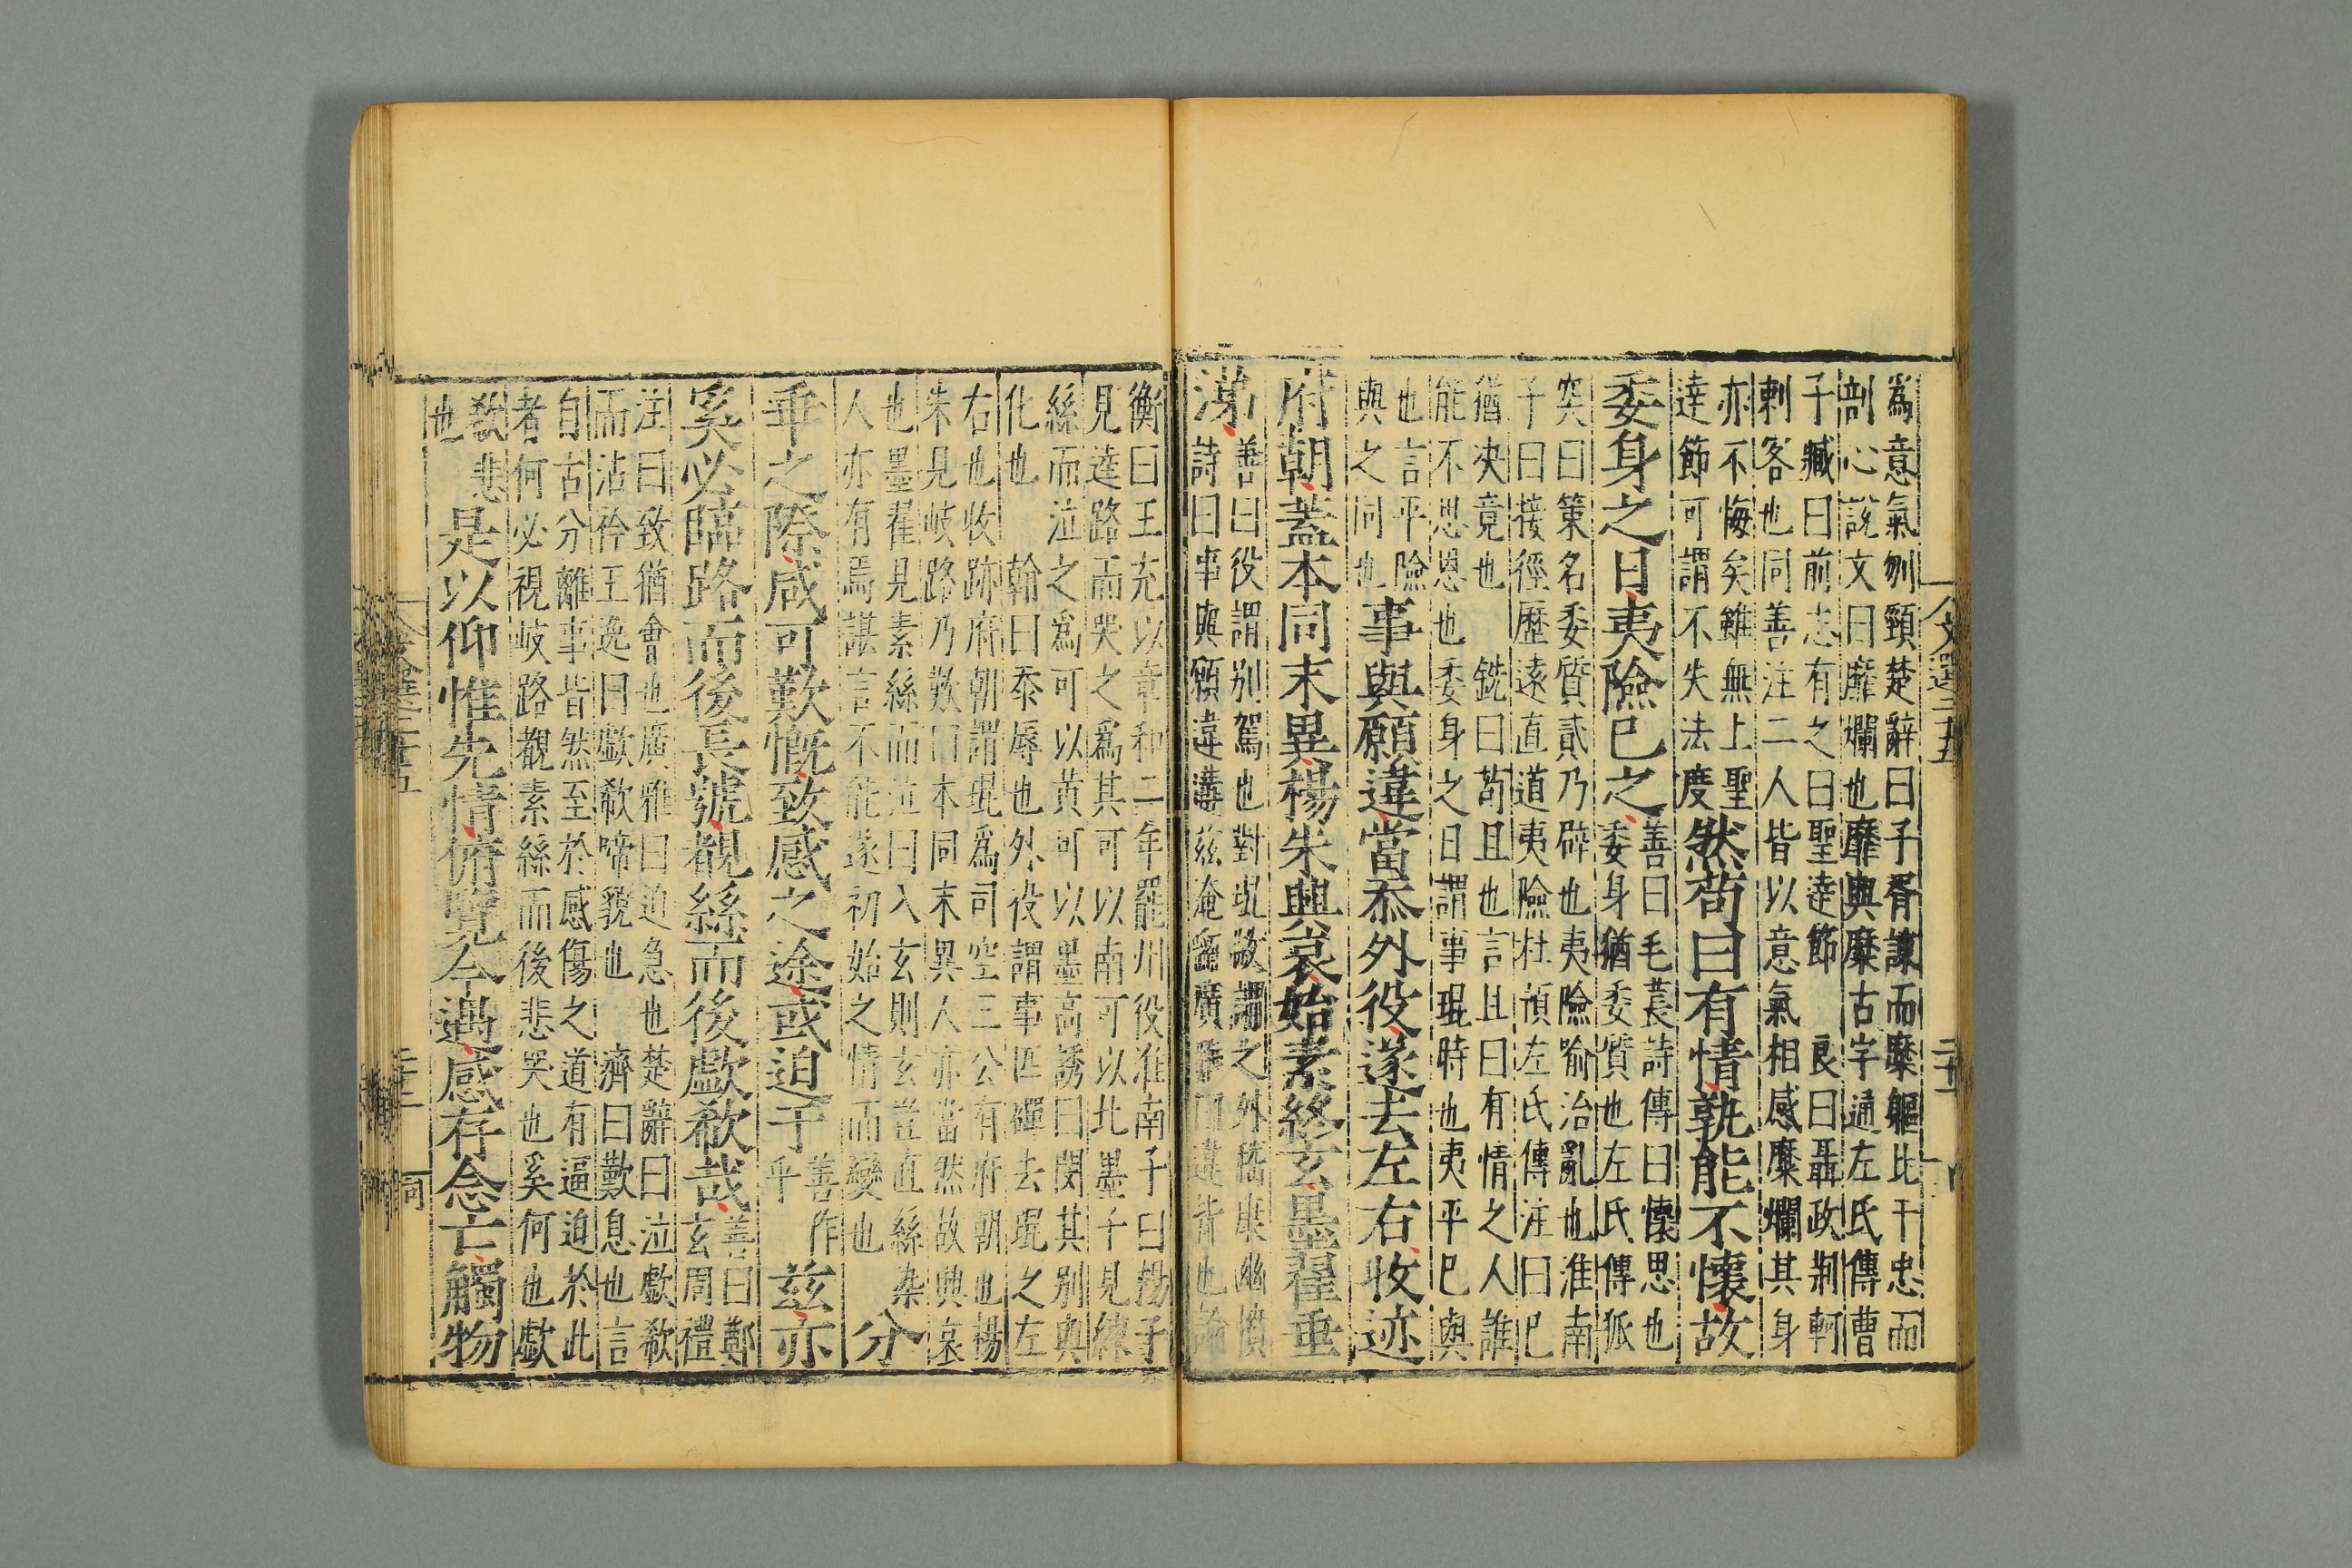 為意氣刎頸楚辭曰子胥諫而糜軀比干忠而
剖心説文曰靡爛也靡與糜古字通左氏傳曹
子臧曰前志有之曰聖達節 良曰聶政荆軻
刺客也同善注二人皆以意氣相感糜爛其身
亦不悔矣雖無上聖
達節可謂不失法度
然苟曰有情孰能不懷故
委身之日夷險已之
善曰毛萇詩傳曰懷思也
委身猶委質也左氏傳狐
突曰策名委質貳乃辟也夷險喻治亂也淮南
子曰接徑歷遠直道夷險杜預左氏傳注曰已
猶决竟也 銑曰苟且也言且曰有情之人誰
能不思恩也委身之日謂事琨時也夷平已與
也言平險
與之同也
事與願違當忝外役遂去左右收迹
府朝蓋本同末異楊朱興哀始素終玄墨翟垂
涕
善曰役謂别駕也對琨故謂之外嵇康幽憤
詩曰事與願違遘兹淹留廣雅曰違背也論
衡曰王充以章和二年罷州役淮南子曰楊子
見逵路而哭之為其可以南可以北墨子見練
絲而泣之為可以黄可以墨高誘曰閔其别與
化也 翰曰忝辱也外役謂事匹磾去琨之左
右也收跡府朝謂琨為司空三公有府朝也楊
朱見岐路乃歎曰本同末異人亦當然故興哀
也墨翟見素絲而泣曰入玄則玄豈直絲染
人亦有焉諶言不能遂初始之情而變也
分
乖之際咸可歎慨致感之途或迫于
善作
乎
兹亦
奚必臨路而後長號覩絲而後歔欷哉
善曰鄭
玄周禮
注曰致猶會也廣雅曰迫急也楚辭曰泣歔欷
而沾衿王逸曰歔欷啼貌也 濟曰歎息也言
自古分離事皆然至於感傷之道有逼迫於此
者何必視岐路覩素絲而後悲哭也奚何也歔
欷悲
也
是以仰惟先情俯覽今遇感存念亡觸物